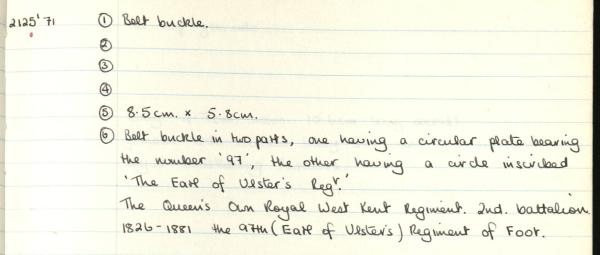 2125'71 ① Belt buckle.
②
③
④
⑤ 8.5cm. x 5.8cm.
⑥ Belt buckle in two parts, one having a circular plate bearing
the number '97', the other having a circle inscribed
'The Earl of Ulster's Regr.'
The Queen's Own Royal West Kent Regiment. 2nd. battalion
1826-1881 the 97th (Earl of Ulster's) Regiment of Foot.